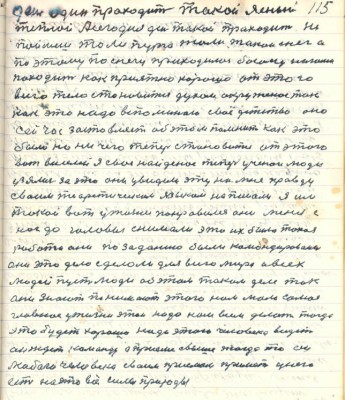 один проходит такой ясный 115
теплой Асегодня ден такой проходит не
поймеш то ли пурга такая снега
по этому по снегу приходился
походит как приятно хорошо от этого
всего тело становится духом окружено так
как это надо вспоминать своё детство оно
сей час заставляет об этом помнит как это
было но ни чего тепер становится от этого
вот веселей Я свое найденое тепер ученые люди
узяли за это они увидели эту на мне правду
своим теоретическим языком написали Я им
такой вот у жизни понравился они меня с
ног до головы снимали это их была такая
работа они по заданию были командированы
они это дело сделали для всего мира и всех
людей пуст люди об этом таком деле так
они знают понимают этого нам мало самое
главное у жизни этом надо нам всем делать тогда
это будет хорошо надо этого человека видеть
он ждет команду о приеме свыше тогда то он
любого человека своим приемом примет у него
ест на это всё силы природы